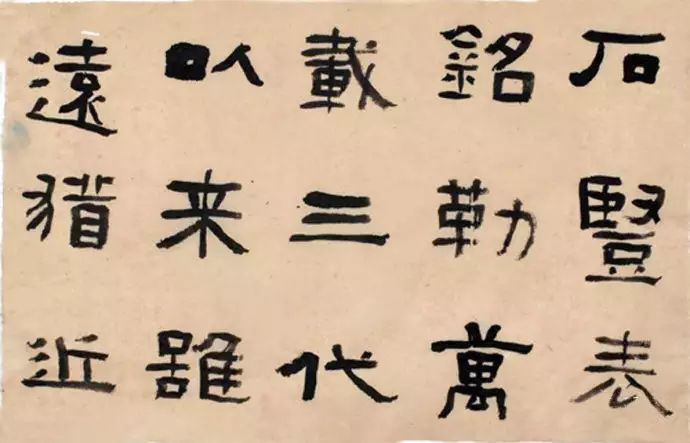 石豎表
銘勒萬
載三代
以来雖
遠猶近